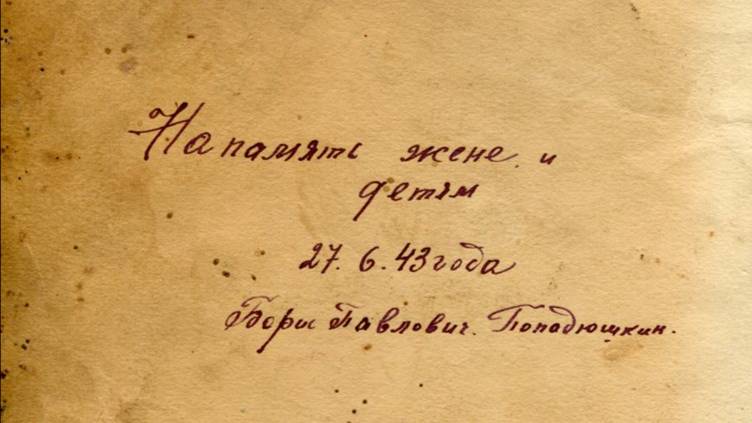 На память жене и
детям
27. 6. 43 года
Борис Павлович. Попадюшкин.